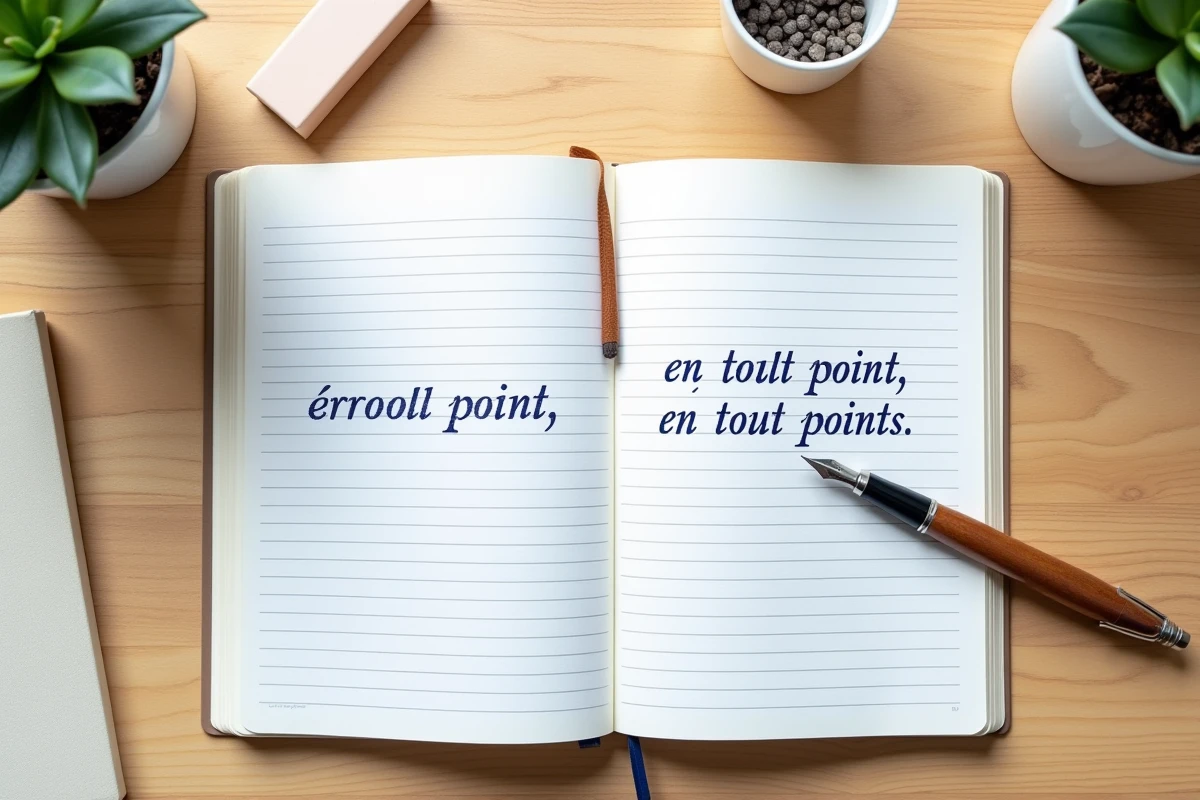 érrooll point,
en toult point,
en tout points.